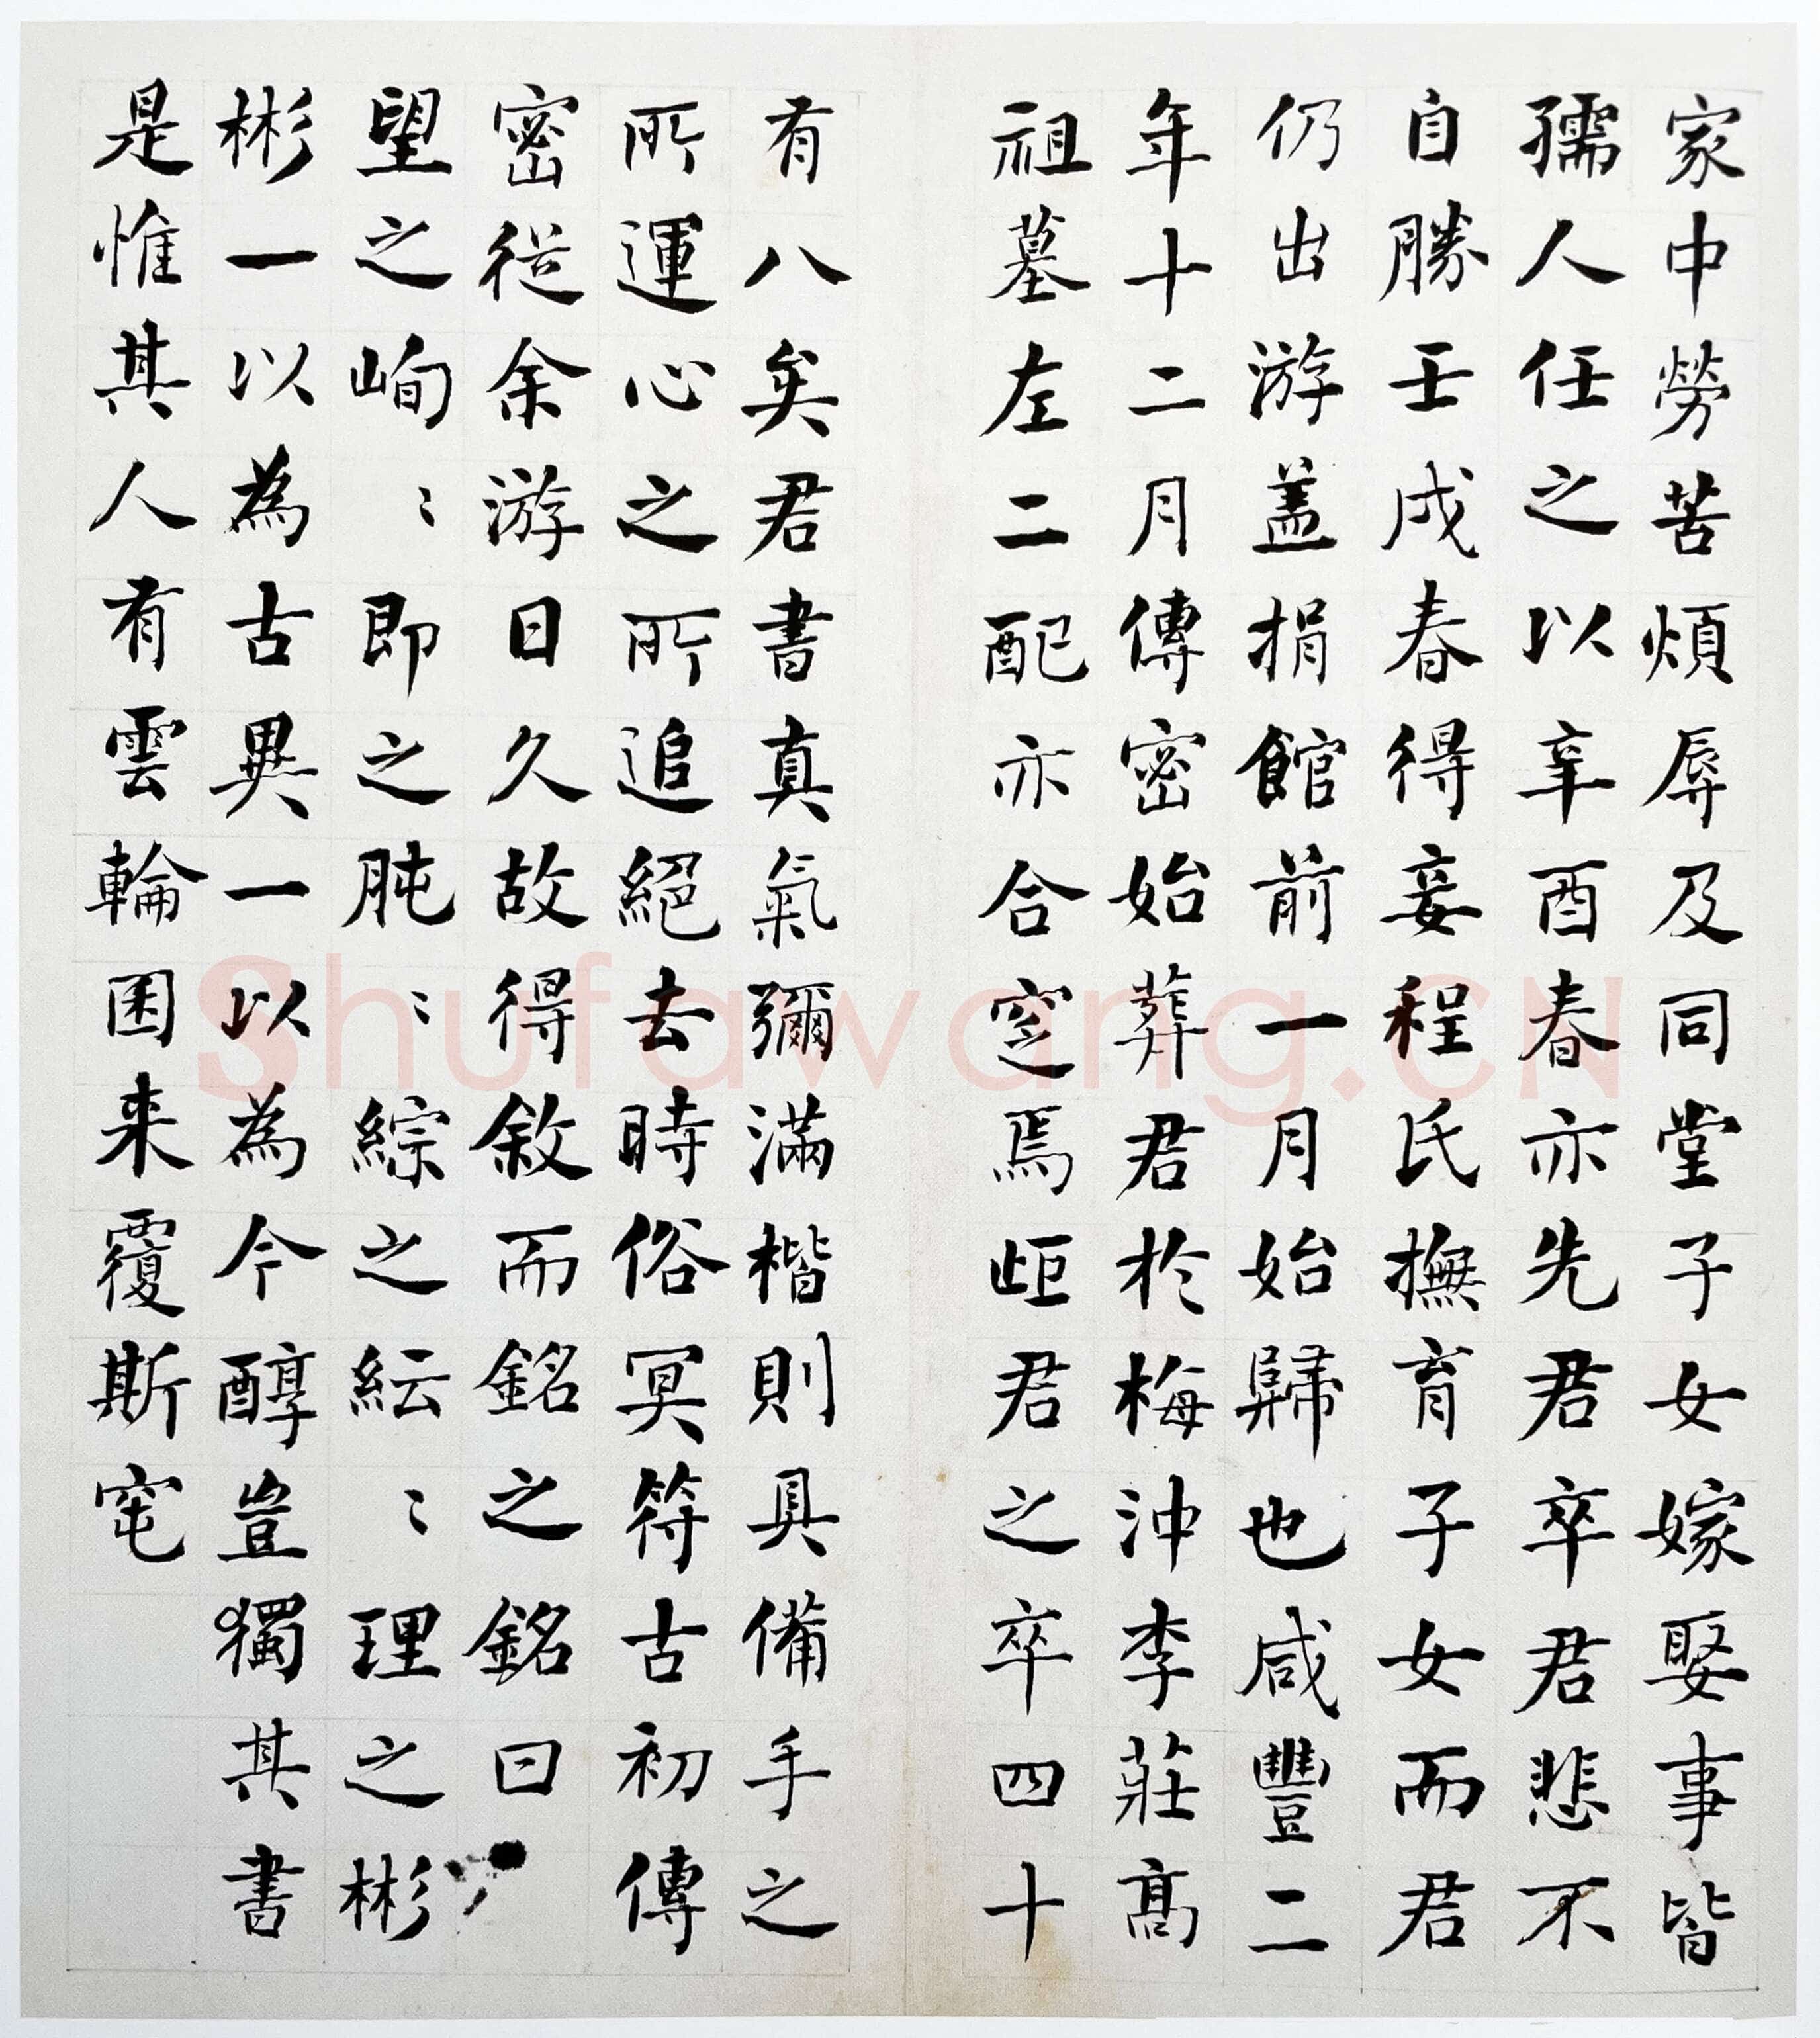 家中勞苦煩辱及同堂子女嫁娶事皆
孺人任之以辛酉春亦先君卒君悲不
自勝壬戌春得妾程氏撫育子女而君
仍出游盖捐館前一月始歸也咸豐二
年十二月傳密始葬君於梅沖李莊高
祖墓左二配亦合窆焉歫君之卒四十
有八矣君書真氣彌滿楷則具備手之
所運心之所追絕去時俗冥符古初傳
密從余游日久故得敘而銘之銘曰
望之峋〻即之肫〻綜之紜〻理之彬
彬一以為古異一以為今醇豈獨其書
是惟其人有雲輪囷来覆斯窀
Shufawang.CN